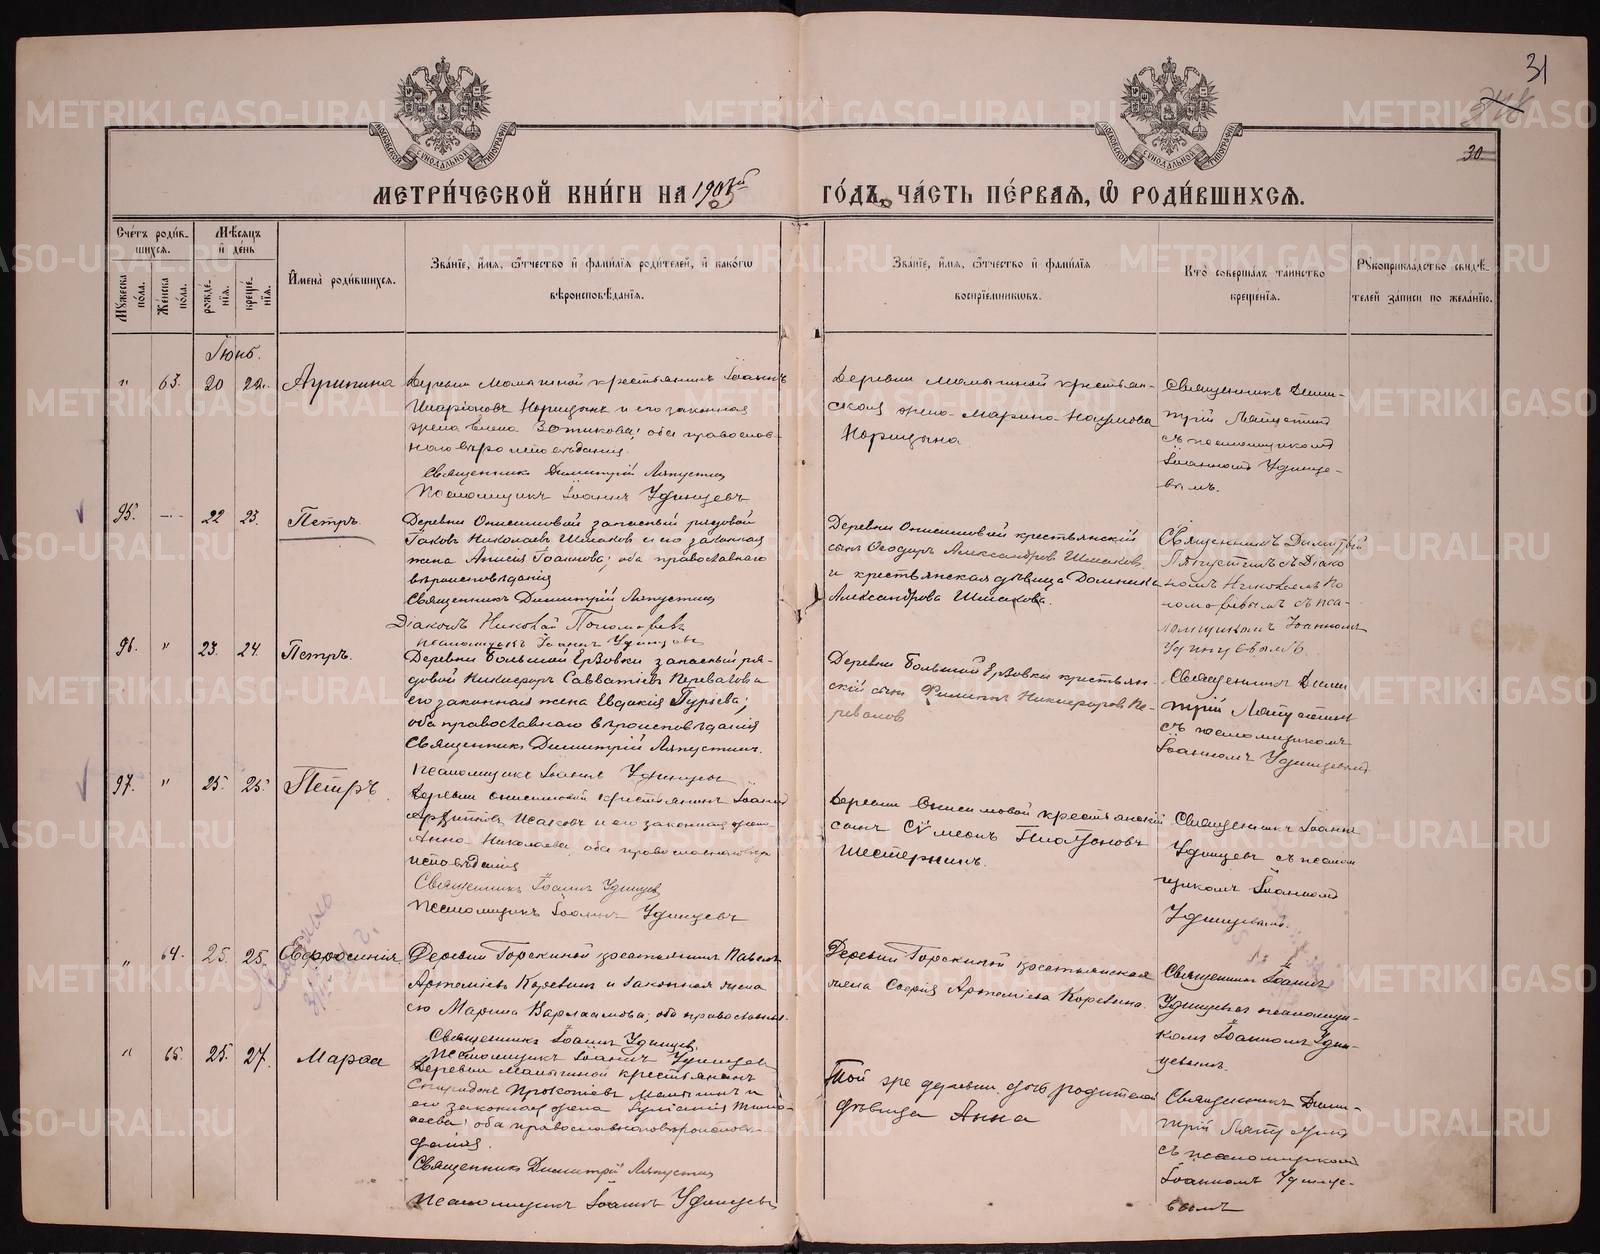 31
30
МОСКОВСКОЙ СѴНОДАЛЬНОЙ ТИПОГРАФІИ
МОСКОВСКОЙ СѴНОДАЛЬНОЙ ТИПОГРАФІИ
МЕТРИ́ЧЕСКОЙ КНИ́ГИ НА 190
ГО́ДЪ, ЧА́СТЬ ПЕ́РВАѦ, Ѡ҆ РОДИ́ВШИХСѦ.
Сче́тъ роди́в-
шихсѧ.
Мѣ́сѧцъ
и҆ де́нь
Мꙋ́жеска
по́ла.
Же́нска
по́ла.
рожде́-
нїѧ.
креще́-
нїѧ.
И҆мена̀ роди́вшихсѧ.
Зва́нїе, и҆́мѧ, ѻ҆́тчество и҆ фамѝлїѧ роди́телей, и҆ како́гѡ
вѣроисповѣ́данїѧ.
Зва́нїе, и҆́мѧ, ѻ҆́тчество и҆ фамѝлїѧ
воспрїе́мникѡвъ.
Кто̀ соверша́лъ та́инство
креще́нїѧ.
Рꙋкоприкла́дство свидѣ́-
телей за́писи по жела́нїю.
Іюнь.
" 63. 20 22. Агрипина
Деревни Мамыгиной крестьянинъ Іоаннъ
и его законная
жена Елена Зотикова; оба православ-
наго вѣроисповѣданія
Священникъ Димитрій Ляпустин
Псаломщикъ Іоаннъ Удинцевъ
Деревни Мамыгиной крестьян-
ская жена Марина Наумова
Священникъ Дими-
трій Ляпустинъ
съ псаломщикомъ
Іоанномъ Удинце-
вымъ.
95. 22 23. Петръ.
Деревни Онисимовой запасный рядовой
Іаковъ Николаевъ Шмаков и его законная
жена Анисія Іоаннова; оба православнаго
вѣроисповѣданія
Священникъ Димитрій Ляпустин
Діаконъ Николай Пономаревъ
псаломщикъ Іоаннъ Удинцевъ
Деревни Онисимовой крестьянскій
сынъ Ѳеодоръ Александровъ Шмаковъ
и крестьянская дѣвица Домника
Александрова Шмакова.
Священникъ Димитрій
Ляпустинъ съ Діако
номъ Николаемъ По
номаревымъ съ пса-
ломщикомъ Іоанномъ
Удинцевымъ.
96. " 23. 24. Петръ.
Деревни Большой Ержовки запасный ря-
довой Никифоръ Савватіевъ Перевалов и
его законная жена Евдокія Гурьева;
оба православнаго вѣроисповѣданія
Священникъ Димитрій Ляпустинъ.
Псаломщикъ Іоаннъ Удинцевъ
Деревни Большой Ержовки крестьян-
скій сынъ Филиппъ Никифоровъ Пе-
ревалов
Священникъ Дими
трій Ляпустинъ
съ псаломщикомъ
Іоанномъ Удинцевымъ
97. " 25. 25. Петръ.
Деревни Онисимовой крестьянинъ Іоаннъ
и его законная жена
Анна Николаева, оба православнаго вѣро
исповѣданія
Священникъ Іоаннъ Удинцев
Псаломщикъ Іоаннъ Удинцевъ
Деревни Онисимовой крестьянскій
сынъ Сѵмеонъ Платоновъ
Шестернинъ.
Священникъ Іоаннъ
Удинцевъ съ псалом
щикомъ Іоанномъ
Удинцевымъ.
" 64. 25. 25. Евфросинія.
Деревни Горскиной крестьянинъ Павелъ
Артеміевъ Коревинъ и законная жена
его Марина Варлаамова; оба православные.
Священникъ Іоаннъ Удинцев,
Псаломщикъ Іоаннъ Удинцев
Деревни Горскиной крестьянская
жена Софія Артеміева Коревина.
Священникъ Іоаннъ
Удинцевъ псаломщи-
комъ Іоанномъ Удин-
цевымъ.
" 65. 25. 27. Марѳа
Деревни Мамыгиной крестьянинъ
Спиридонъ Прокопіевъ Мамыгинъ и
его законная жена Іуліанія Тимо-
ѳеева; оба православнаго вѣроисповѣ-
данія.
Священникъ Димитрій Ляпустин
Псаломщикъ Іоаннъ Удинцевъ
Той же деревни дочь родителей
дѣвица Анна
Священникъ Дими-
трій Ляпустинъ
съ псаломщикомъ
Іоанномъ Удинце-
вымъ
METRIKI.GASO-URAL.RU